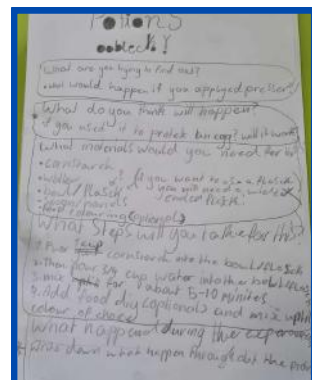 Potions
oobleck!
What are you trying to find out?
•what would happen if you applyed presser?
What do you think will happen?
if you used it to protek an egg? will it work
What materials would you need for
•cornstarch
•water
if you want to use a flask
•bowl/flask
you will need a
•spoon/
•food colouring (optional)
What Steps will you take for this?
1. Pour cornstarch into the bowl/flask
2. then pour 3/4 cup water into the bowl/
3. mix for about 5-10 minites
4. Add food dy (optional) and mix
colour of choice
What happened during the
write down what happen throughout the